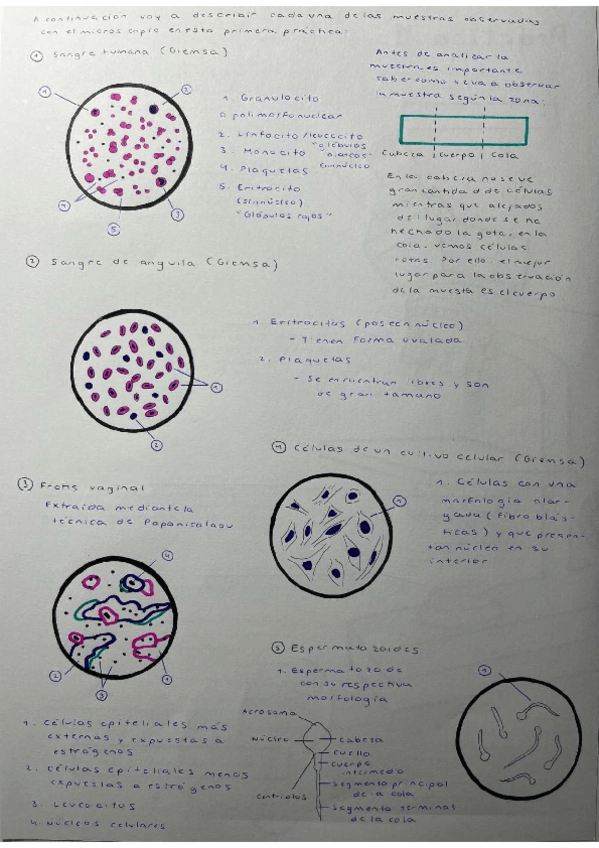 A continuación voy a describir cada una de las muestras observadas
con el microscopio en esta primera práctica:
① Sangre humana (Giemsa)
1
2
4
5
3
1. Granulocito
o polimorfonuclear
2. Linfocito/leucocito
3. Monocito "glóbulos blancos"
4. Plaquetas
5. Eritrocito
"Glóbulos rojos"
Antes de analizar la
muestra es importante
saber como se va a observar
la muestra según la zona:
Cabeza cuerpo cola
En la cabeza no se ve
gran cantidad de células
mientras que alejados
del lugar donde se ha
hechado la gota, en la
cola, vemos células
rotas. Por ello, el mejor
lugar para la observación
de la muestra es el cuerpo
② Sangre de anguila (Giemsa)
1
2
1. Eritrocitos (poseen núcleo)
- Tienen forma ovalada
2. Plaquetas
- Se encuentran libres y son
de gran tamaño
③ Frotis vaginal
Extraída mediante la
técnica de Papanicolaou
4
2
3
1
1. Células epiteliales más
externas y expuestas a
estrógenos
2. Células epiteliales menos
expuestas a estrógenos
3. Leucocitos
4. Núcleos celulares
④ Células de un cultivo celular (Giemsa)
1
1. Células con una
morfología alar-
gada (fibroblás-
ticas) y que presen-
tan núcleo en su
interior
⑤ Espermatozoides
1. Espermatozoide
con su respectiva
morfología
1
Acrosoma
Núcleo
Cabeza
Cuello
cuerpo
intermedio
Centriolos
segmento principal
de la cola
segmento terminal
de la cola